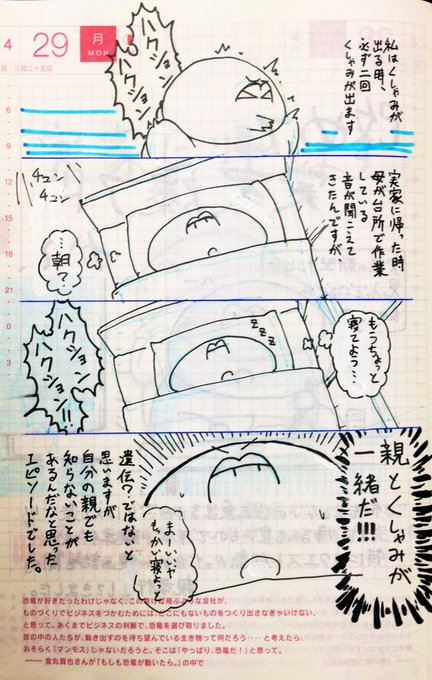 4
29
月
MON
旧:三月二十五日
私はくしゃみが
出る時、
必ず二回
くしゃみが出ます
ハクション
ハクション
6
9
12
15
18
21
0
3
実家に帰った時
母が台所で作業
している
音が聞こえて
きたんですが、
チュン
チュン
…朝て…
もうちょっと
寝てよっ…
zzz
ハクション
ハクション!!
親とくしゃみが
一緒だ!!!
まーいいや
もっかい寝よっと
遺伝?ではないと
思いますが
自分の親でも
知らないことが
あるんだなと思った
エピソードでした。
恐竜が好きだったわけじゃなくて、この空けな飛ぶような会社が、
ものづくりでビジネスをつかむためには、どこにもないものをつくり出さなきゃいけない、
と思って。あくまでビジネスの判断で、恐竜を選び取りました。
世の中の人たちが、動き出すのを待ち望んでいる生き物って何だろう‥‥と考えたら、
おそらく「マンモス」じゃないだろうと。そこは「やっぱり、恐竜だ!」と思って。
── 金丸賀也さんが『もしも恐竜が動いたら。』の中で